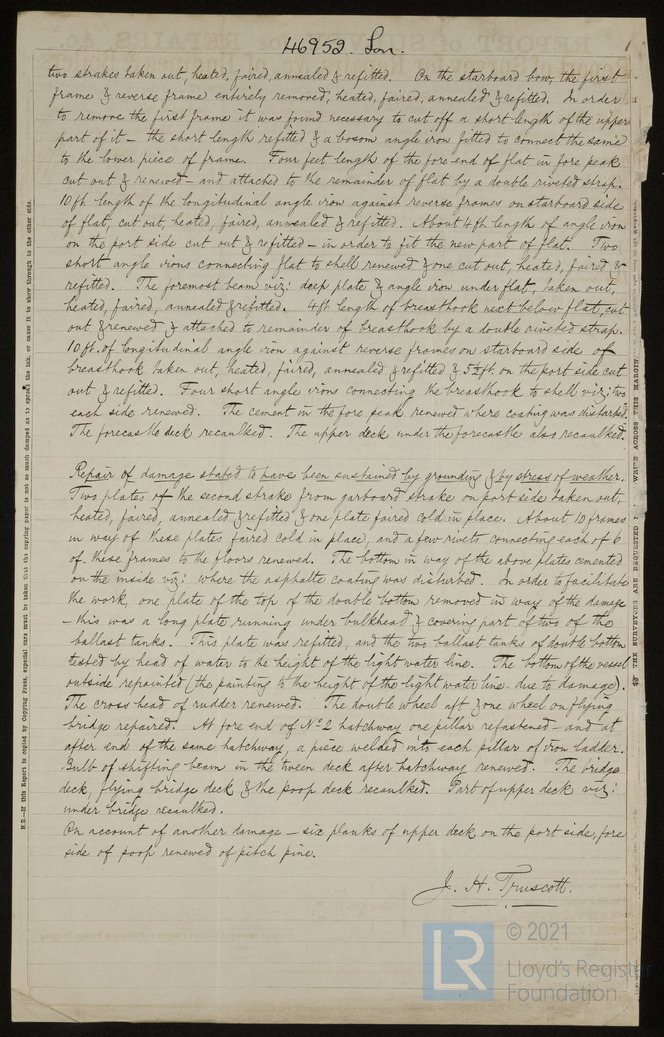 46952. Lon.
two strakes taken out, heated, faired, annealed & refitted. On the starboard bow, the first
frame & reverse frame entirely removed, heated, faired, annealed & refitted. In order
to remove the first frame it was found necessary to cut off a short length of the upper
part of it – the short length refitted & a bosom angle iron fitted to connect the same
to the lower piece of frame. Four feet length of the fore end of flat in fore peak
cut out & renewed – and attached to the remainder of flat by a double riveted strap.
10ft length of the longitudinal angle iron against reverse frames on starboard side
of flat, cut out, heated, faired, annealed & refitted. About 4ft length of angle iron
on the port side cut out & refitted – in order to fit the new part of flat. Two
short angle irons connecting flat to shell renewed & one cut out, heated, faired &
refitted. The foremost beam viz: deep plate & angle iron under flat, taken out,
heated, faired, annealed & refitted. 4ft length of breasthook next below flat, cut
out & renewed & attached to remainder of breasthook by a double riveted strap.
10ft. of longitudinal angle iron against reverse frames on starboard side of
breasthook taken out, heated, faired, annealed & refitted & 5½ft. on the port side cut
out & refitted. Four short angle irons connecting the breasthook to shell viz; two
each side renewed. The cement in the fore peak renewed where coating was disturbed.
The forecastle deck recaulked. The upper deck under the forecastle also recaulked.
Repair of damage stated to have been sustained by grounding & by stress of weather.
Two plates of the second strake from garboard strake on port side taken out,
heated, faired, annealed & refitted & one plate faired cold in place. About 10 frames
in way of these plates faired cold in place, and a few rivets connecting each of 6
of these frames to the floors renewed. The bottom in way of the above plates cemented
on the inside viz: where the asphalte coating was disturbed. In order to facilitate
the work, one plate of the top of the double bottom removed in way of the damage
– this was a long plate running under bulkhead & covering part of two of the
ballast tanks. This plate was refitted, and the two ballast tanks of double bottom
tested by head of water to the height of the light water line. The bottom of the vessel
outside repainted (the painting to the height of the light water line due to damage).
The cross head of rudder renewed. The double wheel aft & one wheel on flying
bridge repaired. At fore end of No 2 hatchway one pillar refastened – and at
after end of the same hatchway, a piece welded into each pillar of iron ladder.
Bulb of shifting beam in the tween deck after hatchway renewed. The bridge
deck, flying bridge deck & the poop deck recaulked. Part of upper deck viz:
under bridge recaulked.
On account of another damage – six planks of upper deck on the port side, fore
side of poop renewed of pitch pine.
J. H. Truscott.
N.B.—If this Report is copied by Copying Press, especial care must be taken that the copying paper is not so much damped as to spread the ink, or cause it to show through to the other side.
THE SURVEYORS ARE REQUESTED WRITE ACROSS THIS MARGIN.
© 2021
LR
Lloyd's Register
Foundation